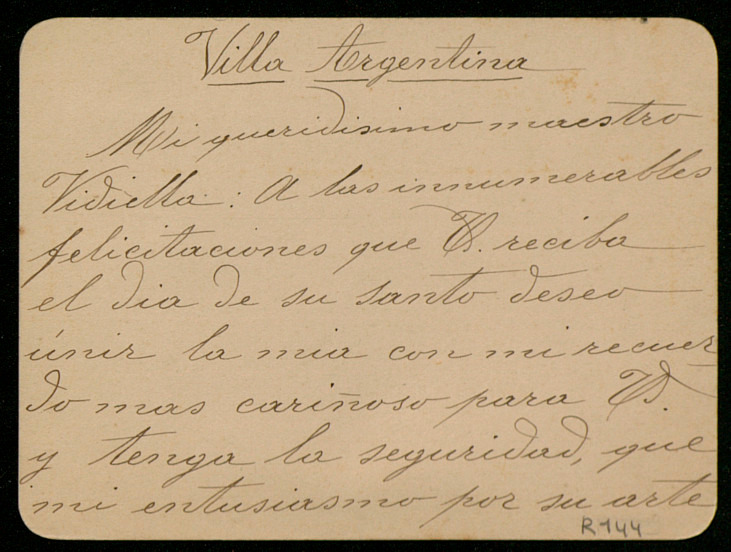 Villa Argentina
Mi queridisimo maestro
Vidiella: A las innumerables
felicitaciones que V. reciba
el dia de su santo deseo
únir la mia con mi recuer
do mas cariñoso para V.
y tenga la seguridad, que
mi entusiasmo por su arte
R144